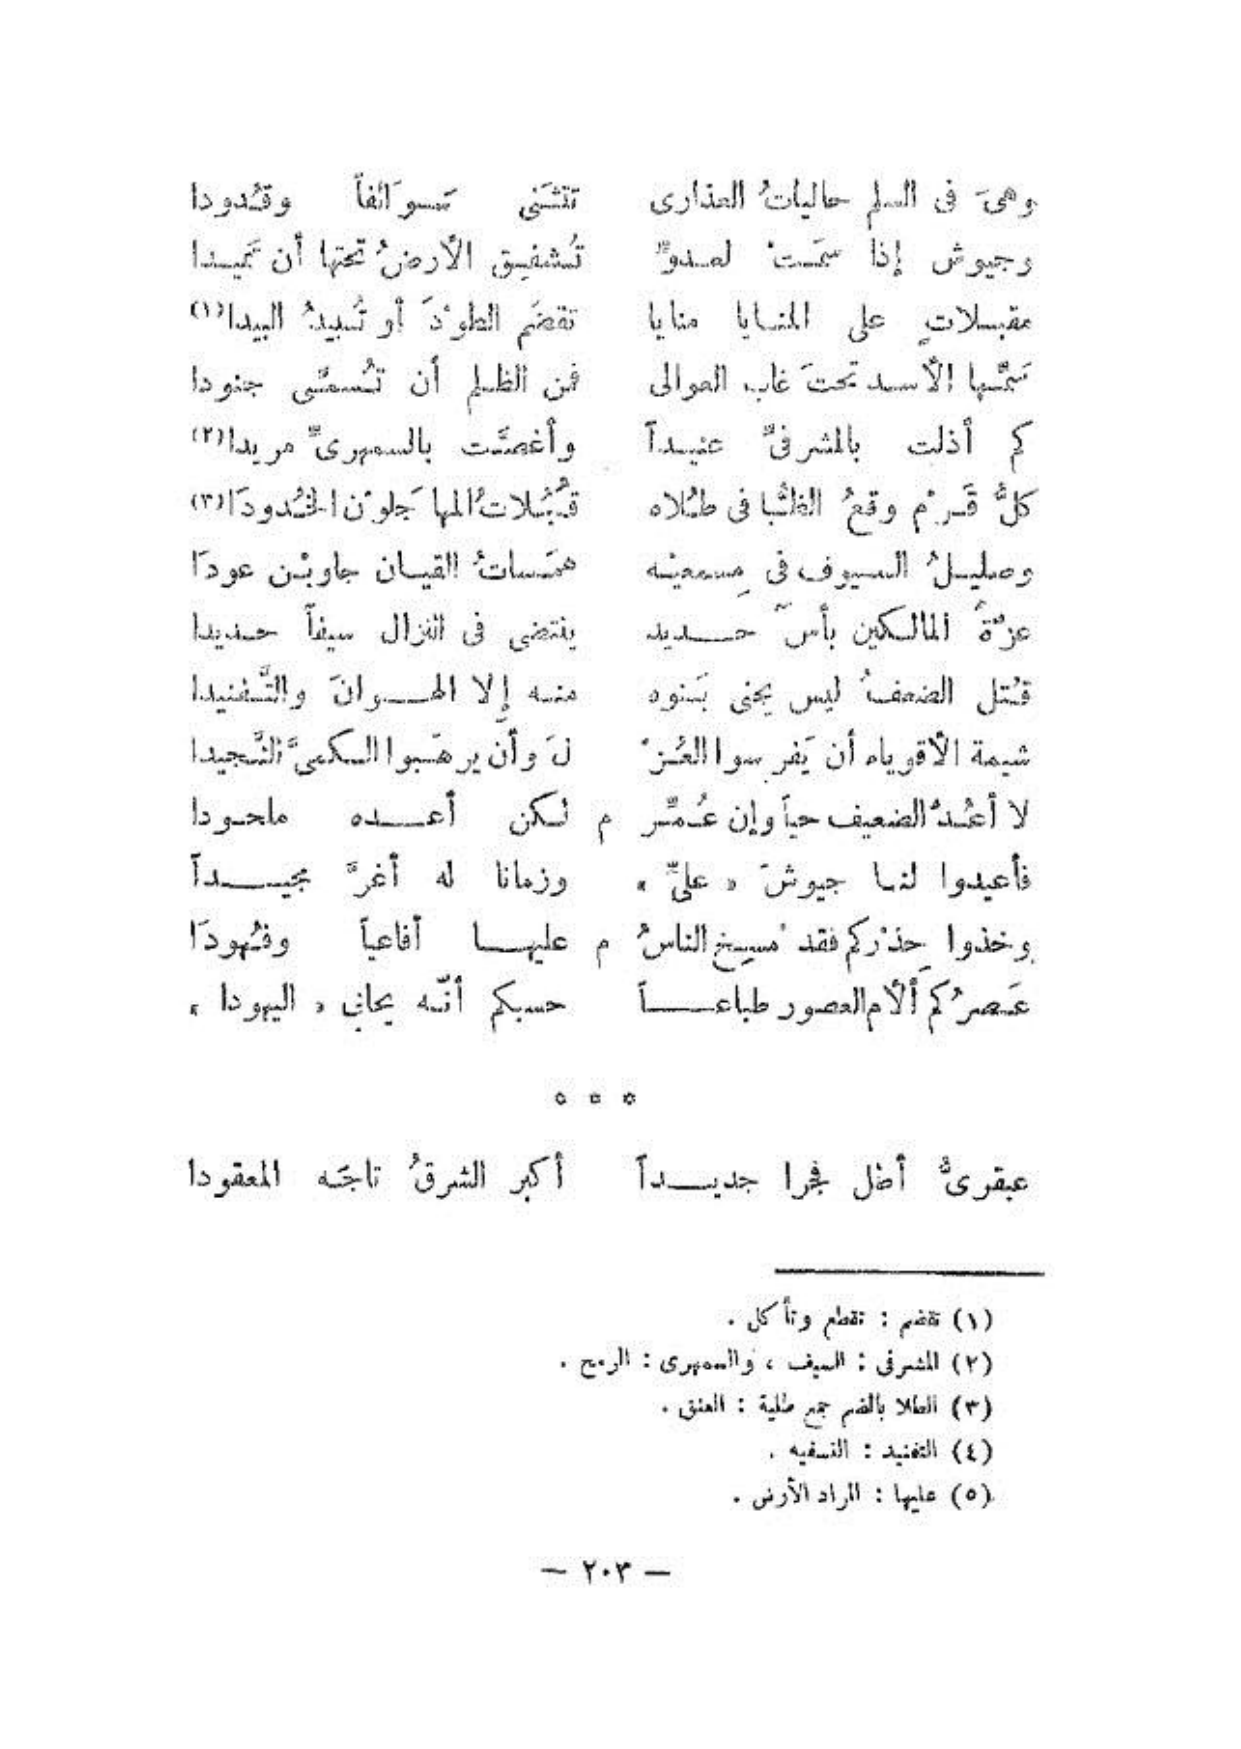 وهىَ فى السلم حالياتُ العذارى تتثنى سوالفاً وقُدودا
وجيوش إذا سمَت لعدوٍّ تُشفِق الأرضُ تحتها أن تميدا
مقبلات على المنايا منايا تقضَم الطوْدَ أو تُبيدُ البيدا (١)
سَمِّها الأسد تحتَ غاب العوالى فمن الظلم أن تُسمَّى جنودا
كم أذلت بالمشرفىِّ عنيداً وأغصَّت بالسمهرىِّ مريدا (٢)
كلُّ قَرْم وقعُ الظُّبا فى طُلاه قُبُلاتُ المها جَلوْن الخُدودَا (٣)
وصليلُ السيوف فى مِسمعيْه همَساتُ القيان جاوبْن عودَا
عزّةُ المالكين بأسٌ حديد ينتضى فى النزال سيفاً حديدا
قُتل الضعفُ ليس يجنى بَنوه منه إلا الهوانَ والتَّفنيدا
شيمة الأقوياء أن يَفرِسوا العُزْ لَ وأن يرهَبوا الكمىَّ النَّجيدا
لا أعُدُّ الضعيف حياً وإن عُمِّر م لكن أعده ملحودا
فأعيدوا لنا جيوشَ « علىٍّ » وزمانا له أغرَّ مجيداً
وخذوا حِذْركم فقد مُسِخ الناسُ م عليها أفاعياً وفُهودَا
عَصرُكم ألأم العصور طباعاً حسبكم أنّه يحابى « اليهودا »
* * *
عبقرىٌّ أطل فجرا جديداً أكبر الشرقُ تاجَه المعقودا
(١) تقضم : تقطع وتأكل .
(٢) المشرفى : السيف ، والسمهرى : الرمح .
(٣) الطلا بالضم جمع طلية : العنق .
(٤) التفنيد : التسفيه .
(٥) عليها : المراد الأرض .
— ٢٠٣ —